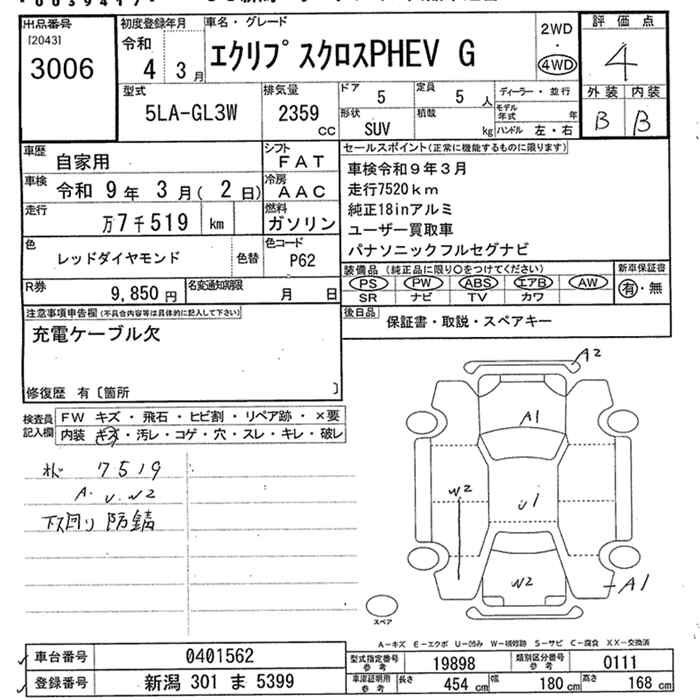 出品番号
[2043]
3006
初度登録年月
令和
4 年 3 月
車名・グレード
エクリプスクロスPHEV G
2WD
・
4WD
評価点
4
外装 内装
B B
型式
5LA-GL3W
排気量
2359
cc
ドア
5
定員
5 人
形状
SUV
積載
kg
ディーラー・並行
モデル年式 年
ハンドル 左・右
車歴
自家用
車検
令和 9 年 3 月 ( 2 日)
走行
万 7 千 519 km
色
レッドダイヤモンド
色替
R券
9,850 円
名変通知期限
月 日
シフト
FAT
冷房
AAC
燃料
ガソリン
色コード
P62
セールスポイント(正常に機能するものに限ります)
車検令和9年3月
走行7520km
純正18inアルミ
ユーザー買取車
パナソニックフルセグナビ
装備品(純正品に限り○をつけてください)
PS PW ABS エアB AW
SR ナビ TV カワ
新車保証書
有・無
後日品
保証書・取説・スペアキー
注意事項申告欄(不具合内容等は具体的に記入して下さい)
充電ケーブル欠
修復歴 有〔箇所 〕
検査員記入欄
FW キズ・飛石・ヒビ割・リペア跡・×要
内装 キズ・汚レ・コゲ・穴・スレ・キレ・破レ
7519
A. U. W2
下回り防錆
A2
A1
W2
U1
W2
A1
スペア
A-キズ E-エクボ U-凹み W-補修跡 S-サビ C-腐食 XX-交換済
車台番号
0401562
登録番号
新潟 301 ま 5399
型式指定番号
参考
19898
類別区分番号
参考
0111
車庫証明用
参考
長さ
454 cm
幅
180 cm
高さ
168 cm